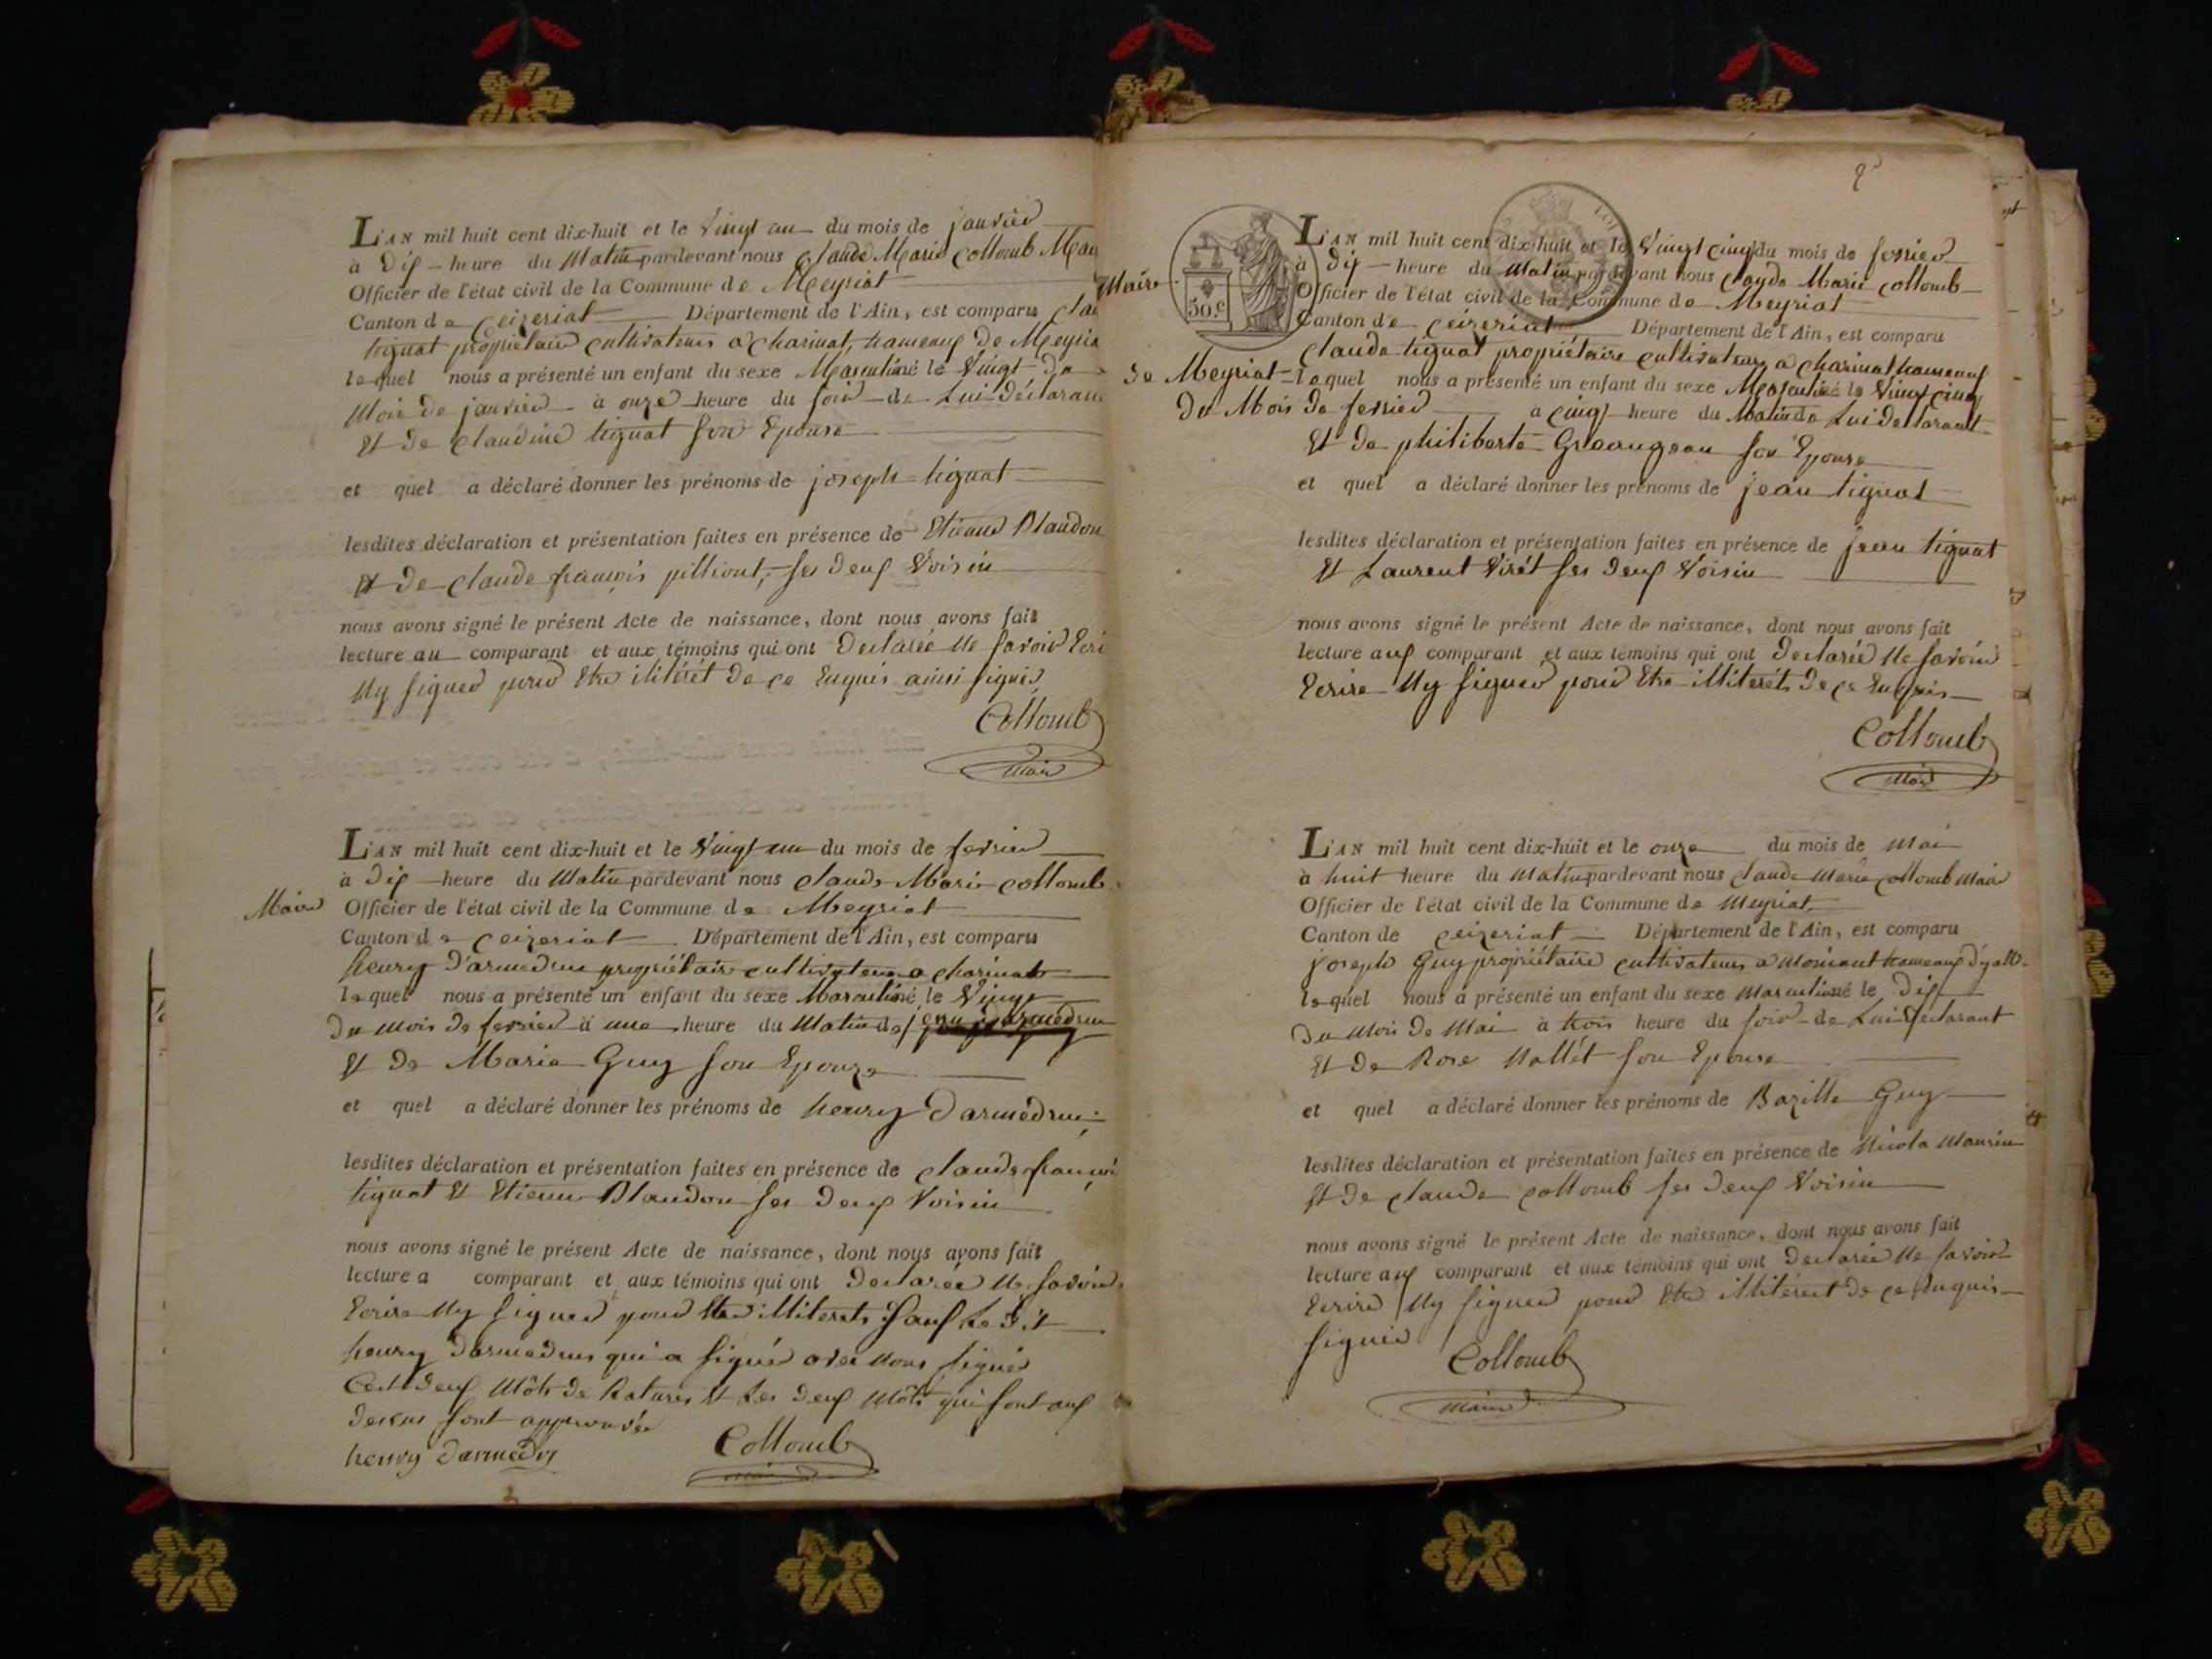 L'AN mil huit cent dix-huit et le Vingt un du mois de janvier
à Dix heure du Matin pardevant nous Claude Marie Collomb Mai
Officier de l'état civil de la Commune de Meyriat
Canton de Ceizeriat Département de l'Ain, est comparu Clau
tignat propriétaire cultivateur a Charinat, hameaux De Meyria
lequel nous a présenté un enfant du sexe Masculin né le Vingt du
Mois De janvier à onze heure du soir de Lui Déclarant
Et De Claudine tignat son Epouse
et quel a déclaré donner les prénoms de joseph tignat
lesdites déclaration et présentation faites en présence de Etienne Blandon
Et De Claude françois pilliont, ses Deux Voisin
nous avons signé le présent Acte de naissance, dont nous avons fait
lecture au comparant et aux témoins qui ont Declarée Ne savoir Ecri
Ny signer pour Etre ilitérét De ce Enquis ainsi signé
Collomb
Maire
L'AN mil huit cent dix-huit et le Vingt un du mois de fevrier
à Dix heure du Matin pardevant nous Claude Marie Collomb
Maire Officier de l'état civil de la Commune de Meyriat
Canton de Ceizeriat Département de l'Ain, est comparu
henry D'armedrun propriétaire cultivateur a Charinat
lequel nous a présenté un enfant du sexe Masculin né le Vingt
Du mois De fevrier à une heure du Matin de
Et De Marie Guy son Epouze
et quel a déclaré donner les prénoms de henry Darmedrun
lesdites déclaration et présentation faites en présence de Claude françoi
tignat Et Etienne Blandon ses Deux Voisin
nous avons signé le présent Acte de naissance, dont nous avons fait
lecture a comparant et aux témoins qui ont Declarée Ne savoir
Ecrire Ny signer pour Etre illiterets Sauf Le Dit
henry Darmedrun qui a signé avec Nous signés
Ces Deux Môts De Ratures Et Les Deux Môts qui sont aux
Dessus sont approuvée
henry Darmedru
Collomb
L'AN mil huit cent dix-huit et le Vingt cinq du mois de fevrier
à Dix heure du Matin pardevant nous Claude Marie Collomb
Maire Officier de l'état civil de la Commune de Meyriat
50.c
Canton de Ceizeriat Département de l'Ain, est comparu
Claude tignat propriétaire cultivateur a Charinat hameaux
De Meyriat lequel nous a présenté un enfant du sexe Masculin né le Vingt cinq
Du Mois De fevrier à cinq heure du Matin de Lui Declarant
Et De philiberte Greangean son Epouse
et quel a déclaré donner les prénoms de jean tignat
lesdites déclaration et présentation faites en présence de jean tignat
Et Laurent Virét ses Deux Voisin
nous avons signé le présent Acte de naissance, dont nous avons fait
lecture aux comparant et aux témoins qui ont Declarée Ne savoir
Ecrire Ny signer pour Etre illiterets De ce Enquis
Collomb
Maire
L'AN mil huit cent dix-huit et le onze du mois de Mai
à huit heure du Matin pardevant nous Claude Marie Collomb Maire
Officier de l'état civil de la Commune de Meyriat
Canton de Ceizeriat Département de l'Ain, est comparu
joseph Guy propriétaire cultivateur a Moniant hameaux
lequel nous a présenté un enfant du sexe Masculin né le Dix
Du Mois De Mai à trois heure du soir de Lui Déclarant
Et De Rose Nollét son Epouse
et quel a déclaré donner les prénoms de Bazille Guy
lesdites déclaration et présentation faites en présence de Nicola Maurin
Et De Claude Collomb ses Deux Voisin
nous avons signé le présent Acte de naissance, dont nous avons fait
lecture aux comparant et aux témoins qui ont Declarée Ne savoir
Ecrire Ny signer pour Etre illitérét De ce Enquis
signié
Collomb
Maire